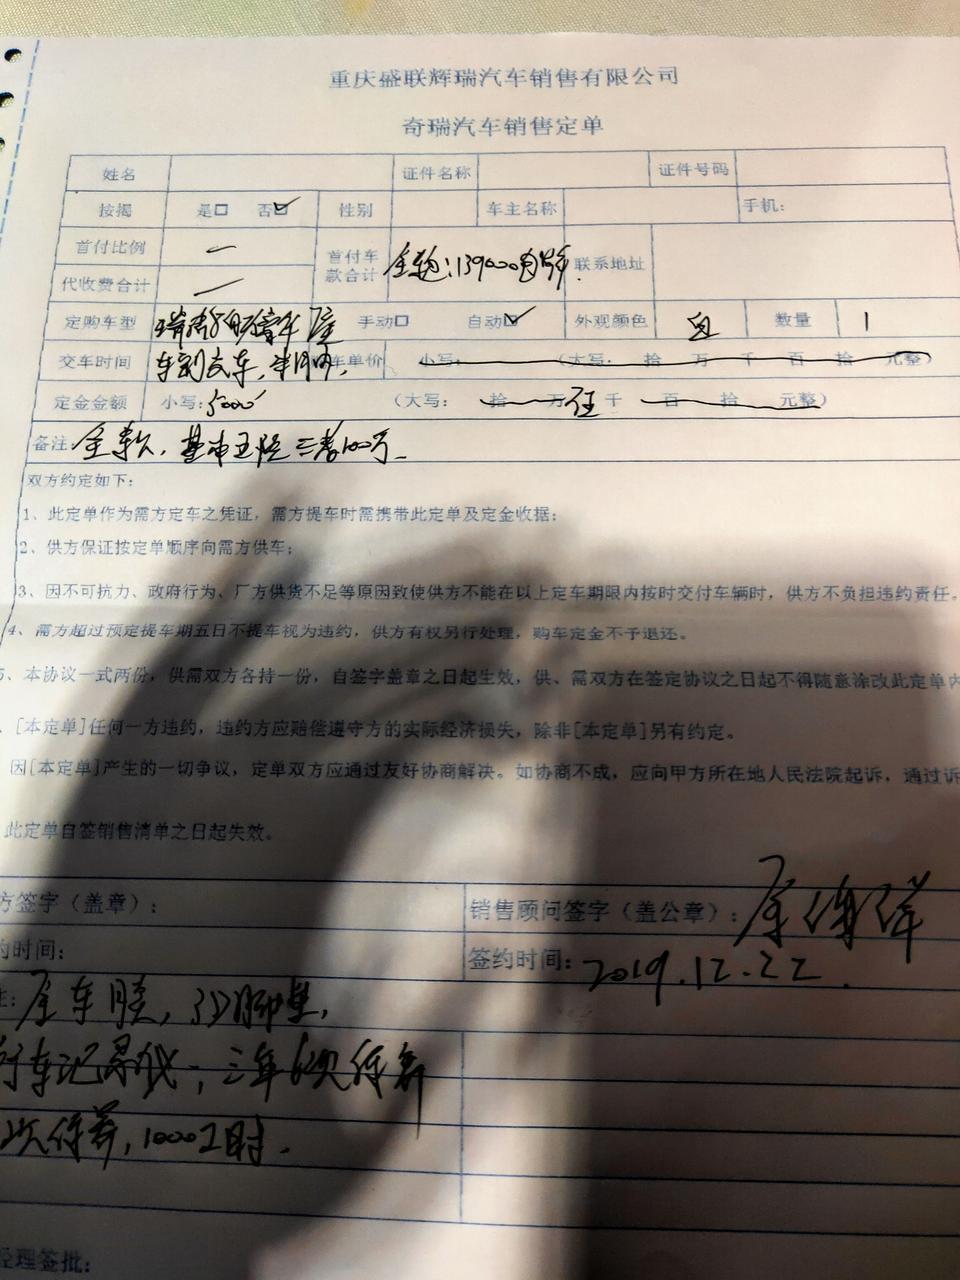 重庆盛联辉瑞汽车销售有限公司
奇瑞汽车销售定单
姓名 证件名称 证件号码
按揭 是□ 否☑ 性别 车主名称 手机:
首付比例 一 首付车款合计 139000 联系地址
代收费合计 一
定购车型 手动□ 自动☑ 外观颜色 数量 1
交车时间 车到交车,半月内. 车单价 小写: (大写: 拾 万 千 百 拾 元整
定金金额 小写: 5000 (大写: 拾 万 伍 千 百 拾 元整)
备注: 全款, 基本五险 三者100万.
双方约定如下:
1、此定单作为需方定车之凭证,需方提车时需携带此定单及定金收据;
2、供方保证按定单顺序向需方供车;
3、因不可抗力、政府行为、厂方供货不足等原因致使供方不能在以上定车期限内按时交付车辆时,供方不负担违约责任。
4、需方超过预定提车期五日不提车视为违约,供方有权另行处理,购车定金不予退还。
、本协议一式两份,供需双方各持一份,自签字盖章之日起生效,供、需双方在签定协议之日起不得随意涂改此定单内
、[本定单]任何一方违约,违约方应赔偿遵守方的实际经济损失,除非[本定单]另有约定。
因[本定单]产生的一切争议,定单双方应通过友好协商解决。如协商不成,应向甲方所在地人民法院起诉,通过诉
此定单自签销售清单之日起失效。
方签字(盖章): 销售顾问签字(盖公章):
约时间: 签约时间: 2019.12.22
注: 全车膜, 3D脚垫,
行车记录仪, 三年6次保养
次保养, 1000工时.
经理签批: